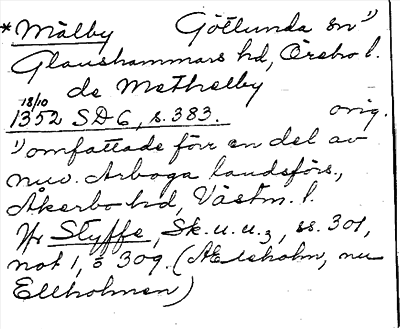 *Mälby Götlunda sn 1)
Glanshammars hd, Örebro l.
de Methelby
18/10
1352 SD 6, s. 383. orig.
1) omfattade förr en del av
nuv. Arboga landsförs.,
Åkerbo hd, Västm. l.
Jfr Styffe, Sk. u. u. 3, ss. 301,
not 1, o 309. (Ælsholm, nu
Ellholmen)